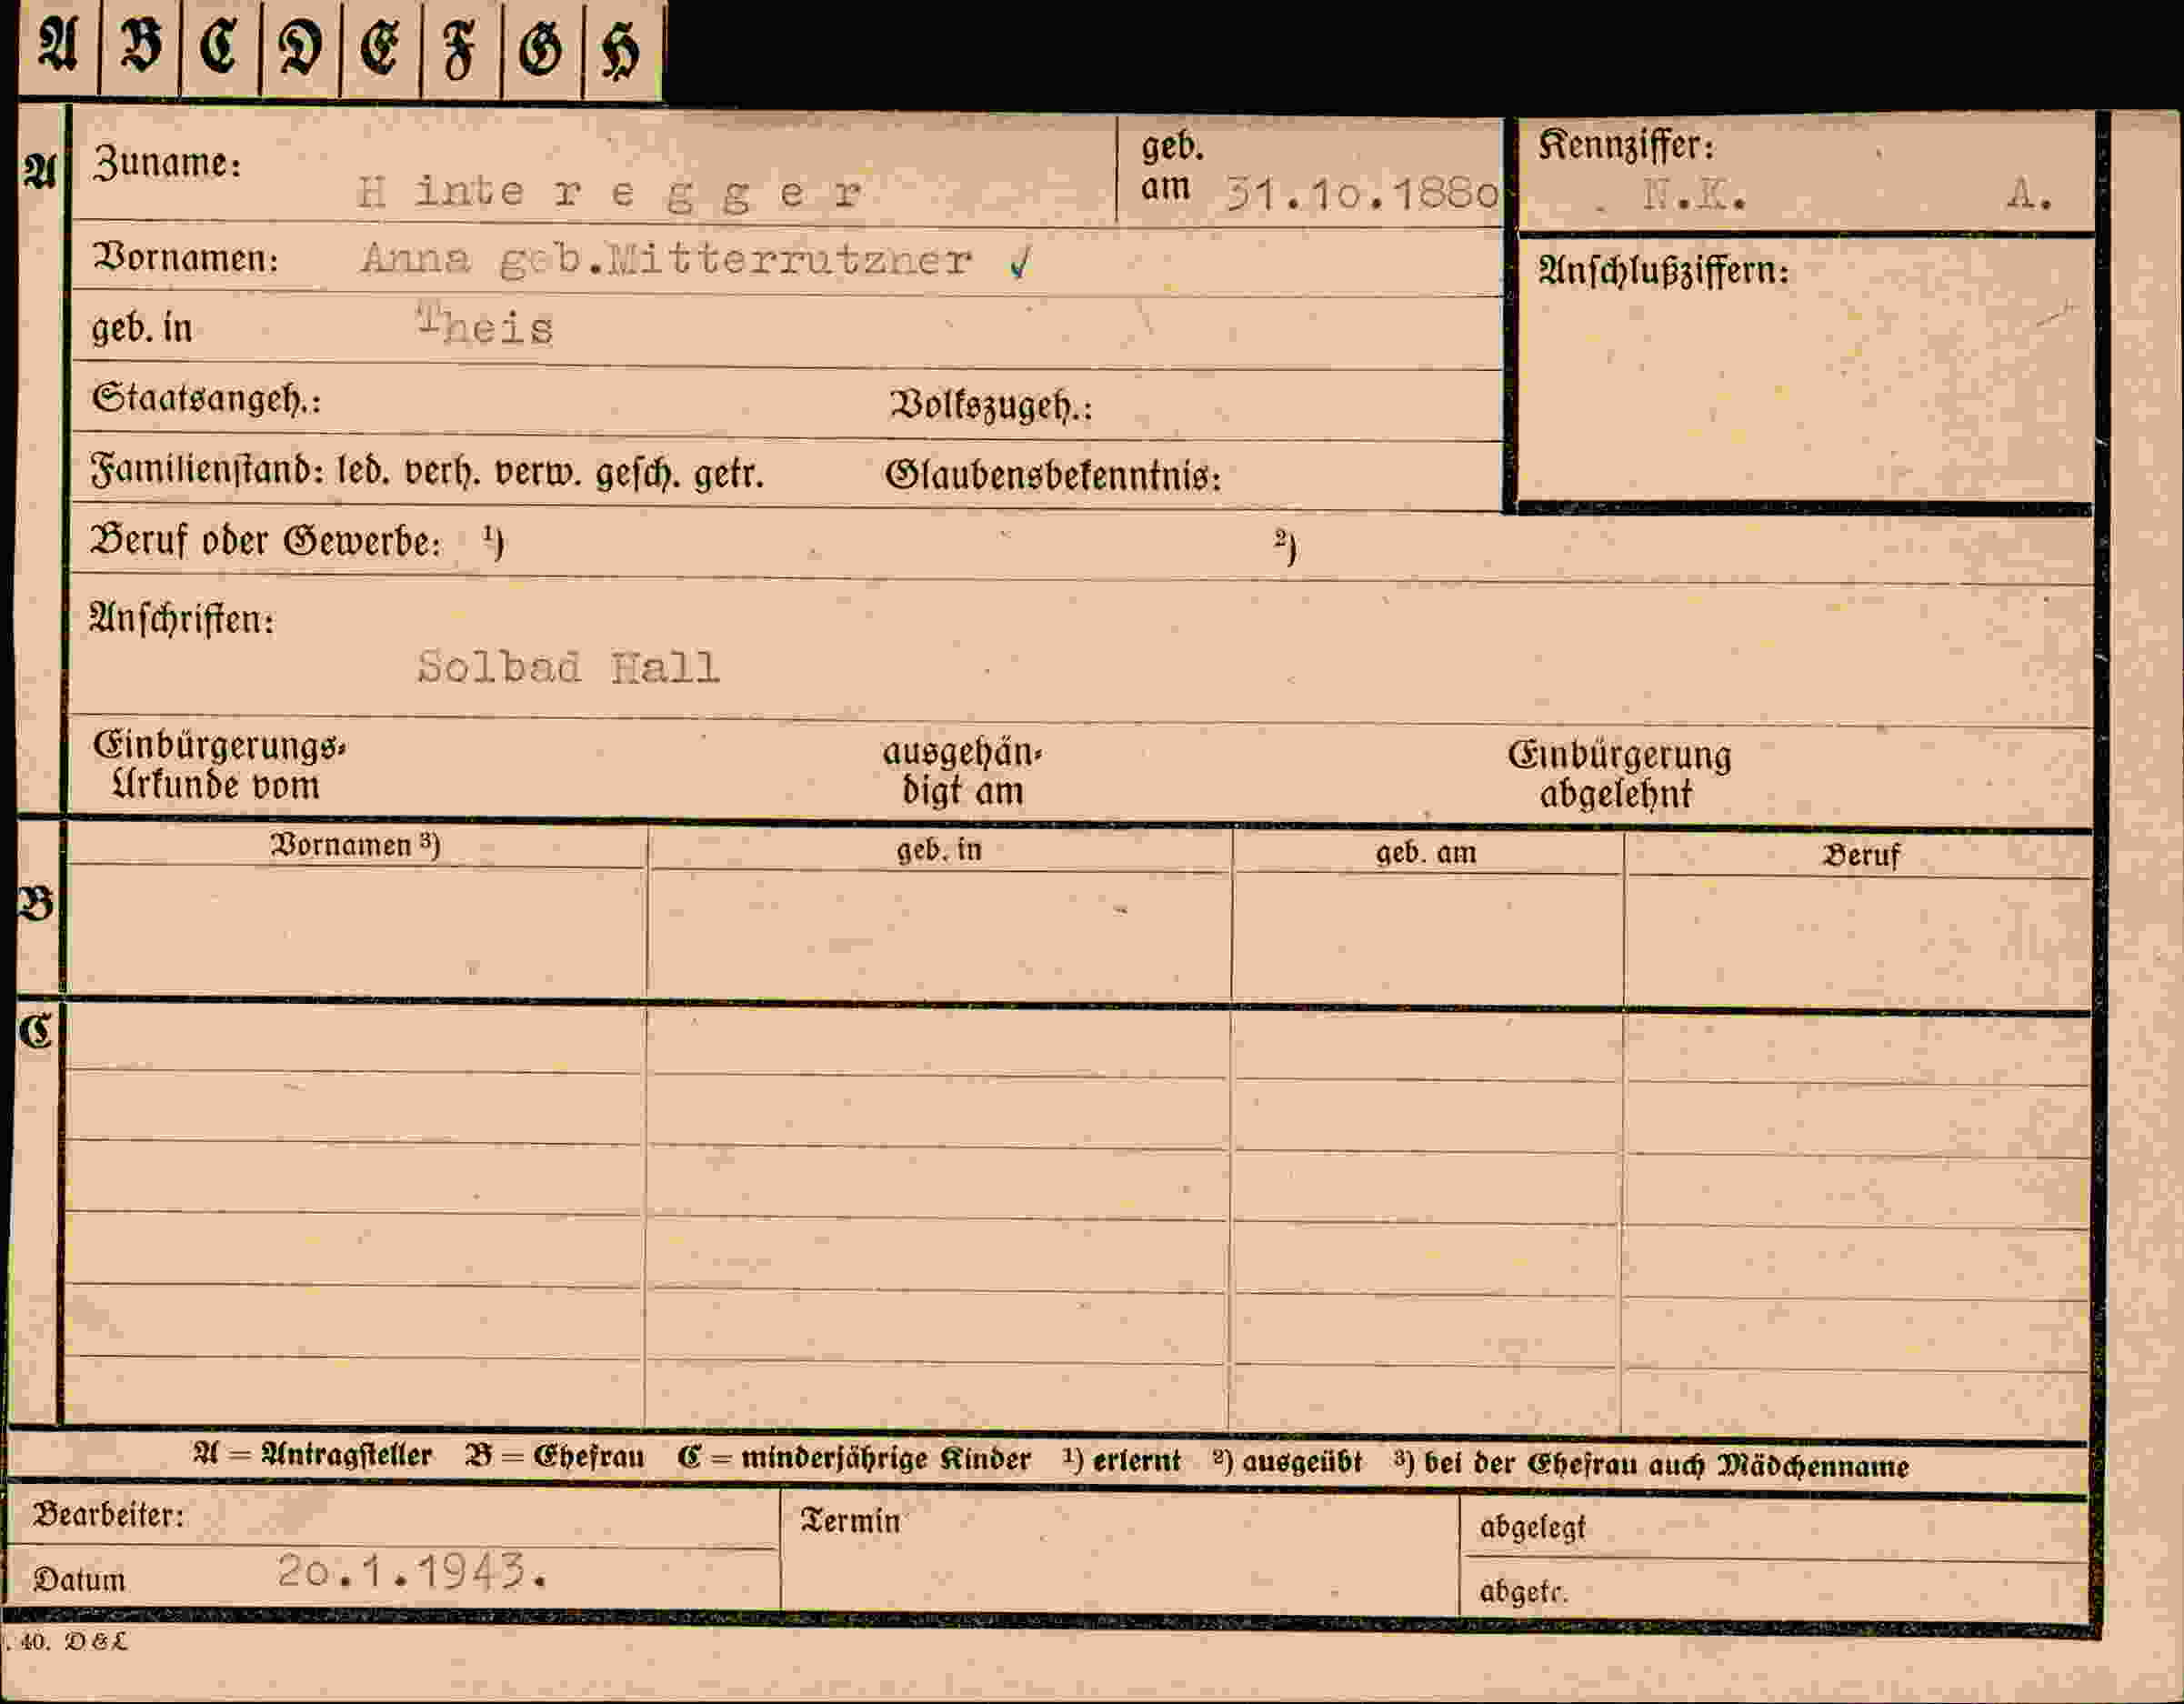 A B C D E F G H
A Zuname: H inte r e g g e r geb. am 31.10.1880 Kennziffer: . N.K. A.
Vornamen: Anna geb.Mitterrutzner ✓
Anschlußziffern:
geb. in Theis
Staatsangeh.: Volkszugeh.:
Familienstand: led. verh. verw. gesch. getr. Glaubensbekenntnis:
Beruf oder Gewerbe: ¹) ²)
Anschriften:
Solbad Hall
Einbürgerungs- ausgehän- Einbürgerung
Urkunde vom digt am abgelehnt
Vornamen ³) geb. in geb. am Beruf
B
C
A = Antragsteller B = Ehefrau C = minderjährige Kinder ¹) erlernt ²) ausgeübt ³) bei der Ehefrau auch Mädchenname
Bearbeiter: Termin abgelegt
Datum 20.1.1943. abgetr.
. 40. D & L